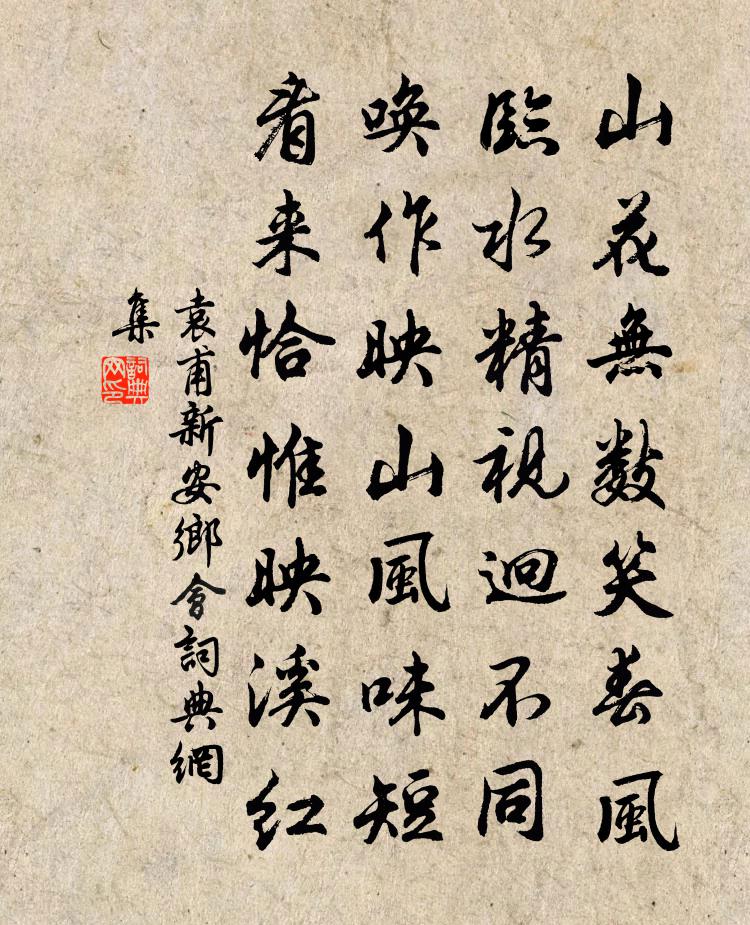 山花無數笑春風
臨水精視迥不同
喚作映山風味短
看来恰惟映溪紅
袁甫新安鄉會詞典網
集
詞典
网印